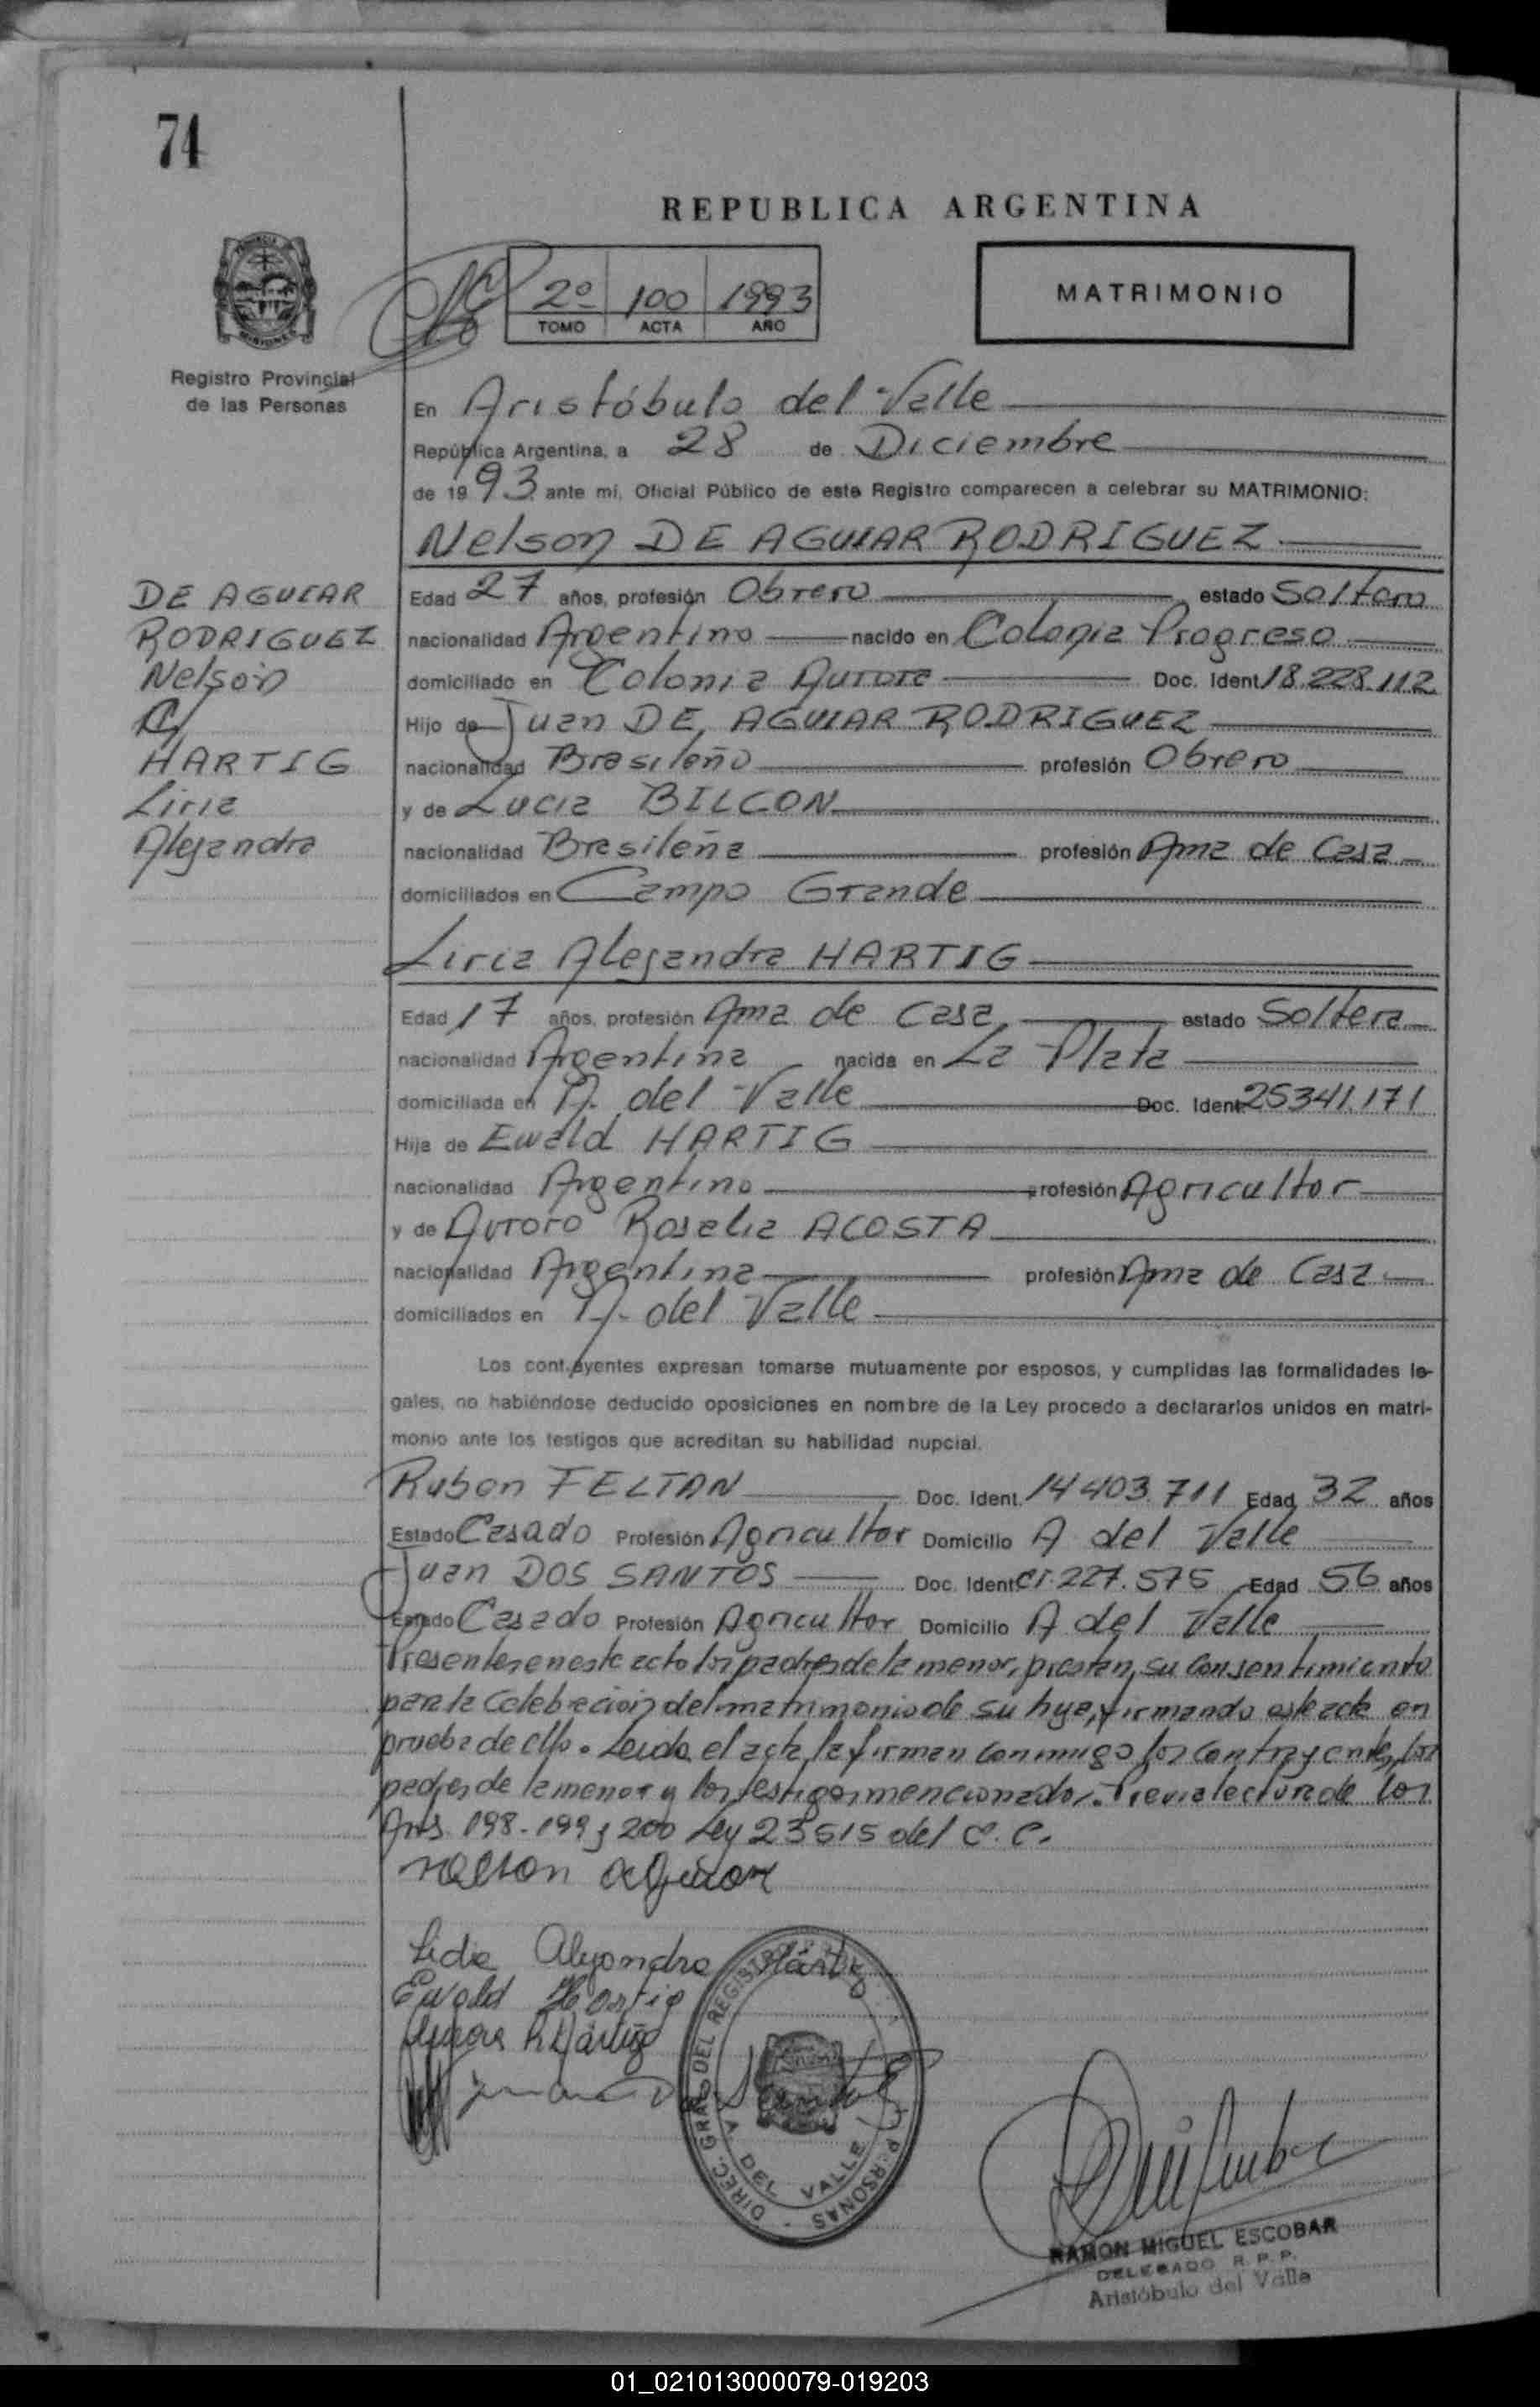 74
REPUBLICA ARGENTINA
2º 100 1993
TOMO ACTA AÑO
MATRIMONIO
Registro Provincial
de las Personas
En Aristóbulo del Valle
República Argentina, a 28 de Diciembre
de 1993 ante mí, Oficial Público de este Registro comparecen a celebrar su MATRIMONIO:
Nelson DE AGUIAR RODRIGUEZ
DE AGUIAR
RODRIGUEZ
Nelson
C/
HARTIG
Liria
Alejandra
Edad 27 años, profesión Obrero estado Soltero
nacionalidad Argentino nacido en Colonia Progreso
domiciliado en Colonia Aurora Doc. Ident. 18.228.112
Hijo de Juan DE AGUIAR RODRIGUEZ
nacionalidad Brasileño profesión Obrero
y de Lucia BILCON
nacionalidad Brasileña profesión Ama de Casa
domiciliados en Campo Grande
Liria Alejandra HARTIG
Edad 17 años, profesión Ama de Casa estado Soltera
nacionalidad Argentina nacida en La Plata
domiciliada en A. del Valle Doc. Ident. 25341.171
Hija de Ewald HARTIG
nacionalidad Argentino profesión Agricultor
y de Auroro Rosalia ACOSTA
nacionalidad Argentina profesión Ama de Casa
domiciliados en A. del Valle
Los contrayentes expresan tomarse mutuamente por esposos, y cumplidas las formalidades le-
gales, no habiéndose deducido oposiciones en nombre de la Ley procedo a declararlos unidos en matri-
monio ante los testigos que acreditan su habilidad nupcial.
Ruben FELTAN Doc. Ident. 14403.711 Edad 32 años
Estado Casado Profesión Agricultor Domicilio A del Valle
Juan DOS SANTOS Doc. Ident. CI.227.575 Edad 56 años
Estado Casado Profesión Agricultor Domicilio A del Valle
Presentes en este acto los padres de la menor, prestan su consentimiento
para la celebración del matrimonio de su hija, firmando este acta en
prueba de ello. Leida el acta, la firman conmigo los contrayentes, los
padres de la menor y los testigos mencionados. Previa lectura de los
Arts. 198-199 y 200 Ley 23515 del C.C.
nelson aguiar
Lidia Alejandra Hartig
Ewald Hartig
Aurora R Hartig
DIREC. GRAL. DEL REGISTRO PERSONAS
A DEL VALLE
RAMON MIGUEL ESCOBAR
DELEGADO R. P. P.
Aristóbulo del Valle
01_021013000079-019203